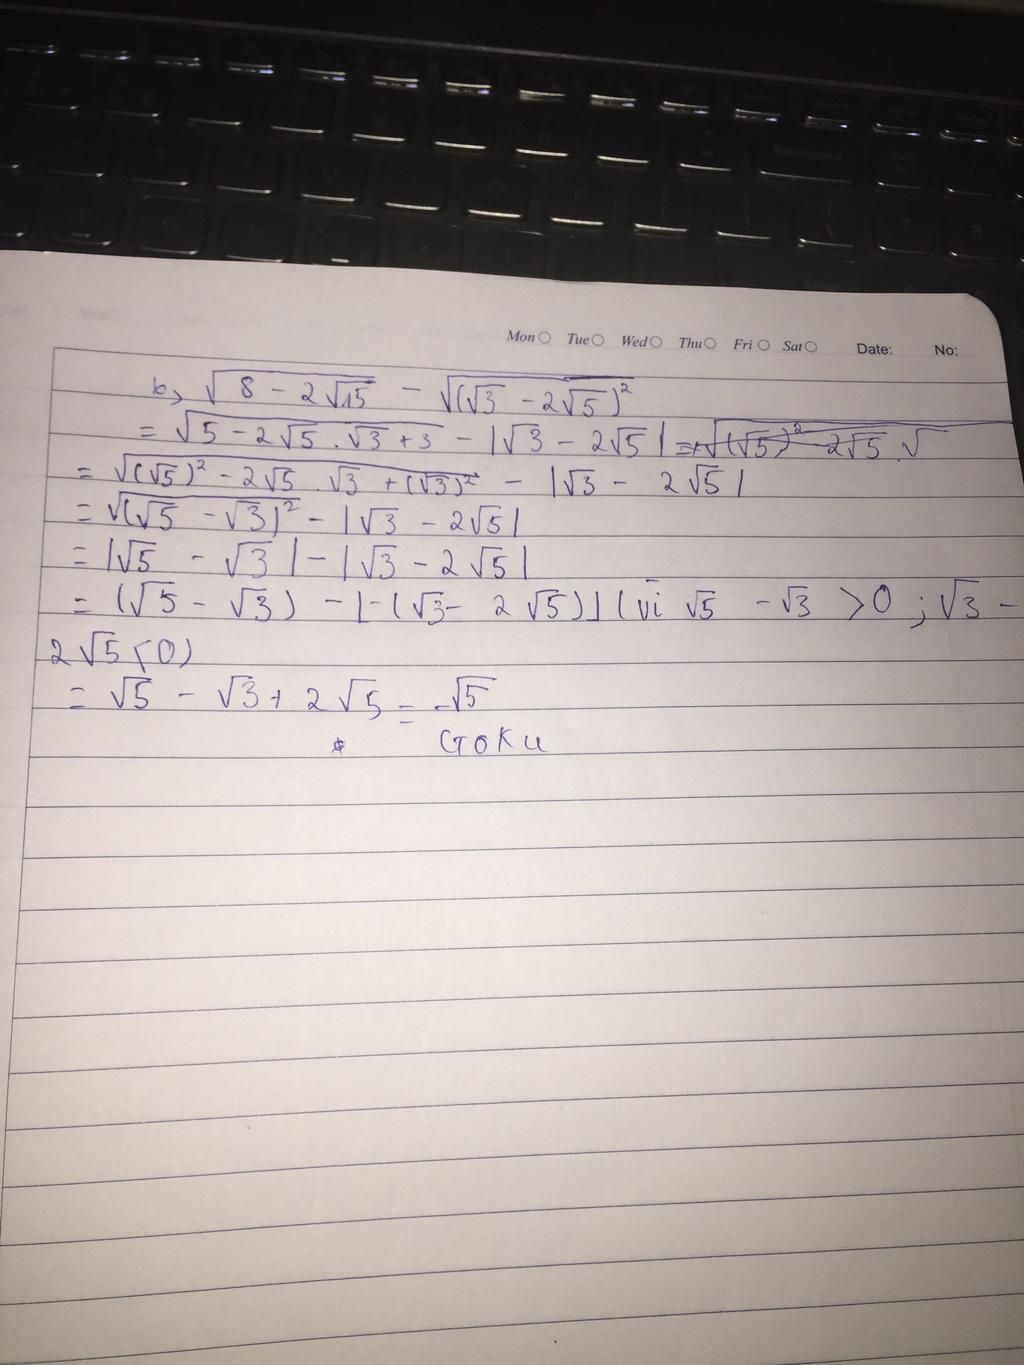 Mon Tue Wed Thu Fri Sat Date: No:
b, √(8 - 2√15) - √((√3 - 2√5)²)
= √(5 - 2√5 . √3 + 3) - |√3 - 2√5| = √((√5)² - 2√5 . √
= √((√5)² - 2√5 . √3 + (√3)²) - |√3 - 2√5|
= √((√5 - √3)²) - |√3 - 2√5|
= |√5 - √3| - |√3 - 2√5|
= (√5 - √3) - [-(√3 - 2√5)] (vì √5 - √3 > 0 ; √3 -
2√5 < 0)
= √5 - √3 + 2√5 = -√5
GOKU
Backspace